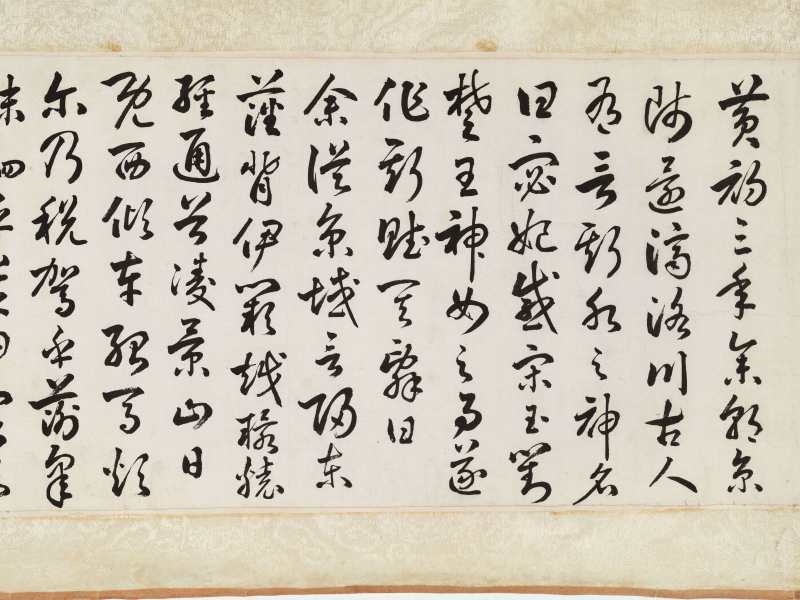 黃初三年余朝京
師還濟洛川古人
有言斯水之神名
曰宓妃感宋玉對
楚王神女之事遂
作斯賦其辭曰
余從京域言歸東
藩背伊闕越轘轅
經通谷凌景山日
既西傾車殆馬煩
尔乃稅駕乎蘅皋